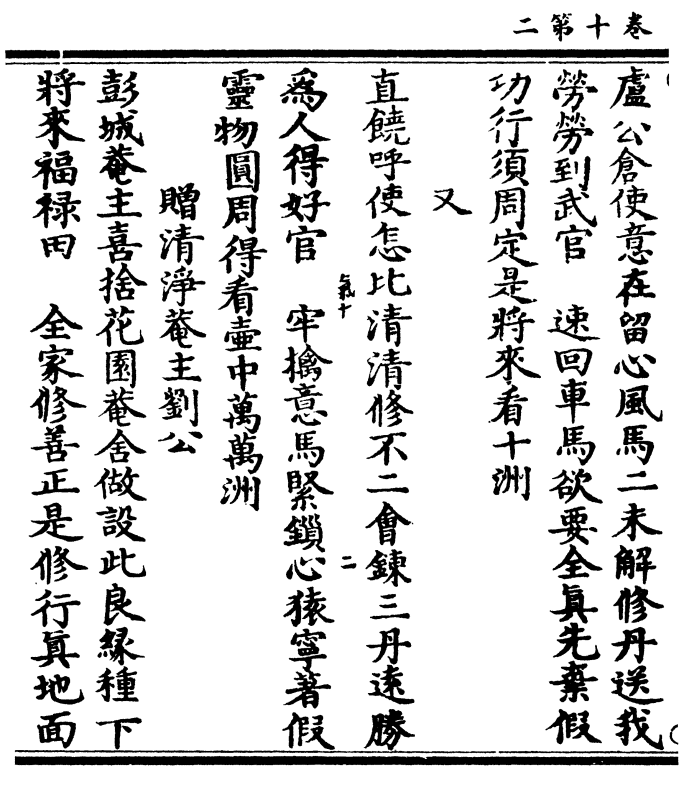 卷十第二
盧公倉使意在留心風馬二未解修丹送我
勞勞到武官　速回車馬欲要全眞先棄假
功行須周定是將來看十洲
又
直饒呼使怎比清清修不二會鍊三丹遠勝
爲人得好官　牢擒意馬緊鎖心猿寧著假
靈物圓周得看壷中萬萬洲
贈清淨菴主劉公
彭城菴主喜捨花園菴舍做設此良緣種下
將來福禄田　全家修善正是修行眞地面
氣十
二